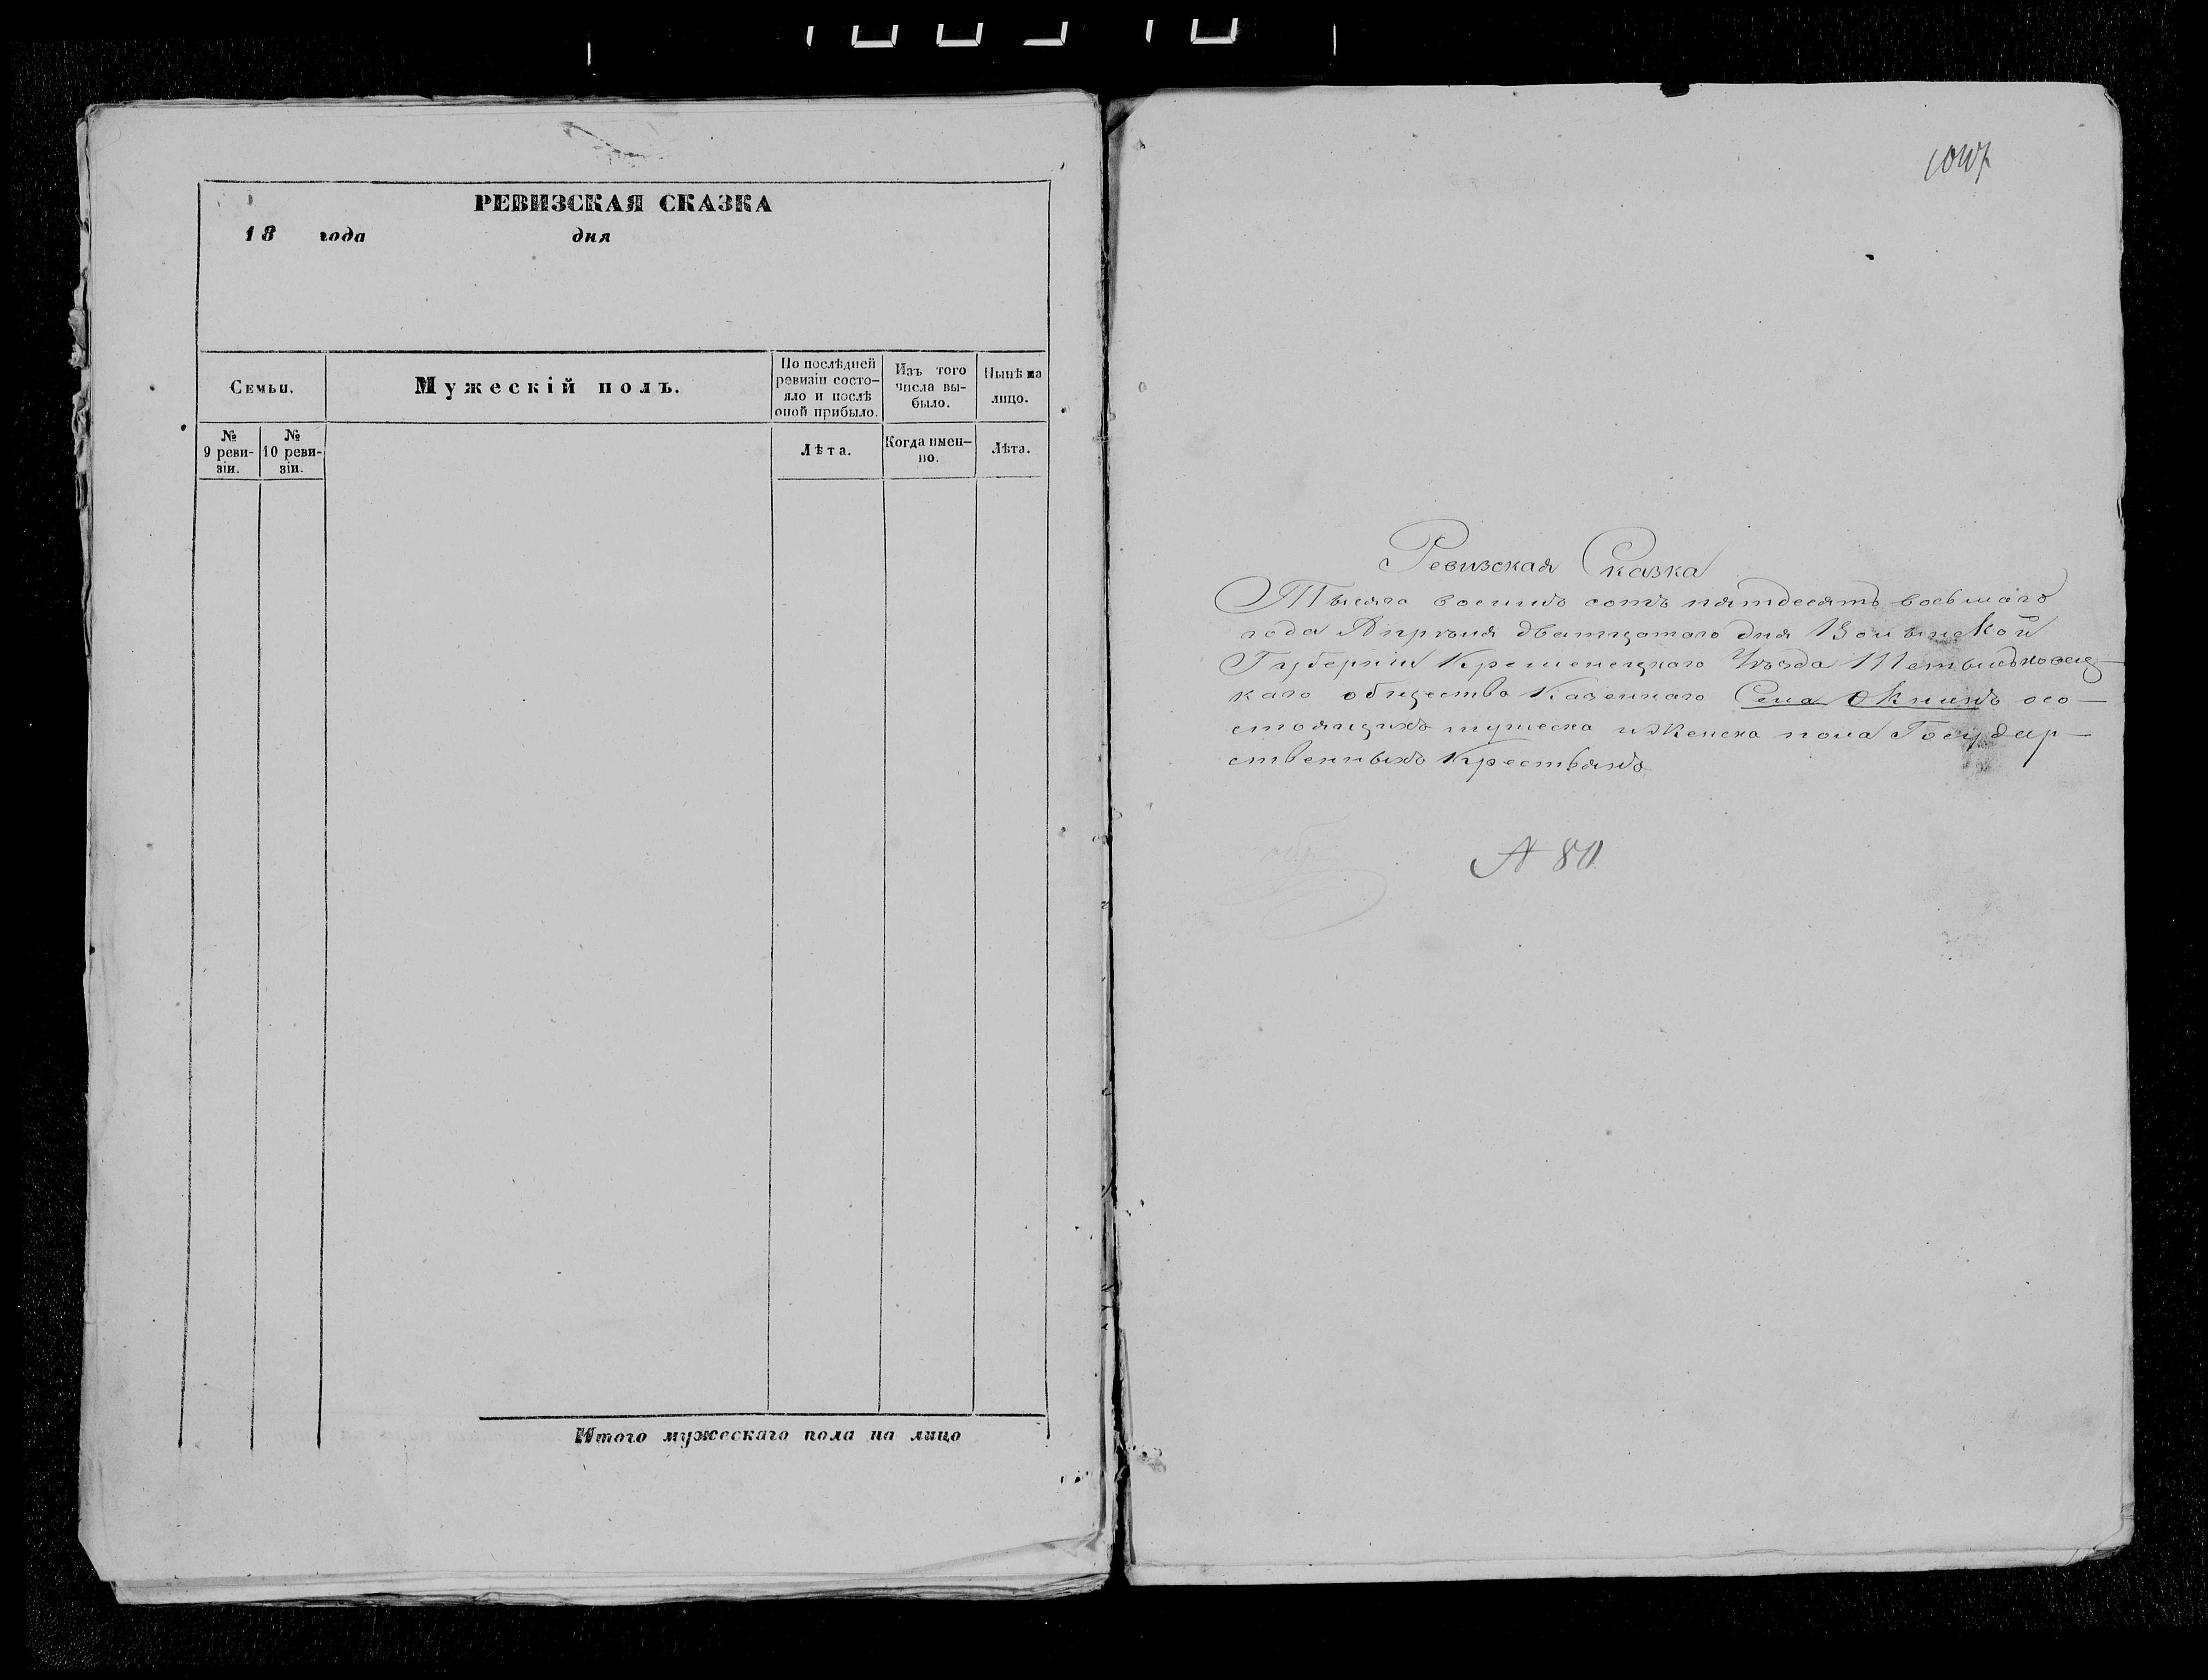 РЕВИЗСКАЯ СКАЗКА
18 года дня
Семьи.
Мужескій полъ.
По послѣдней
ревизіи состо-
яло и послѣ
оной прибыло.
Изъ того
числа вы-
было.
Нынѣ на
лицо.
№
9 реви-
зіи.
№
10 реви-
зіи.
Лѣта.
Когда имен-
но.
Лѣта.
Итого мужескаго пола на лицо
Ревизская Сказка
Тысяча восимъ сотъ пятдесятъ восьмаго
года Апрѣля дватцатаго дня Волынской
Губерніи Кременецкаго Уѣзда
каго общества Казеннаго Села Окнинъ осо-
стоящихъ мужеска и женска пола Государ-
ственныхъ Крестьянъ